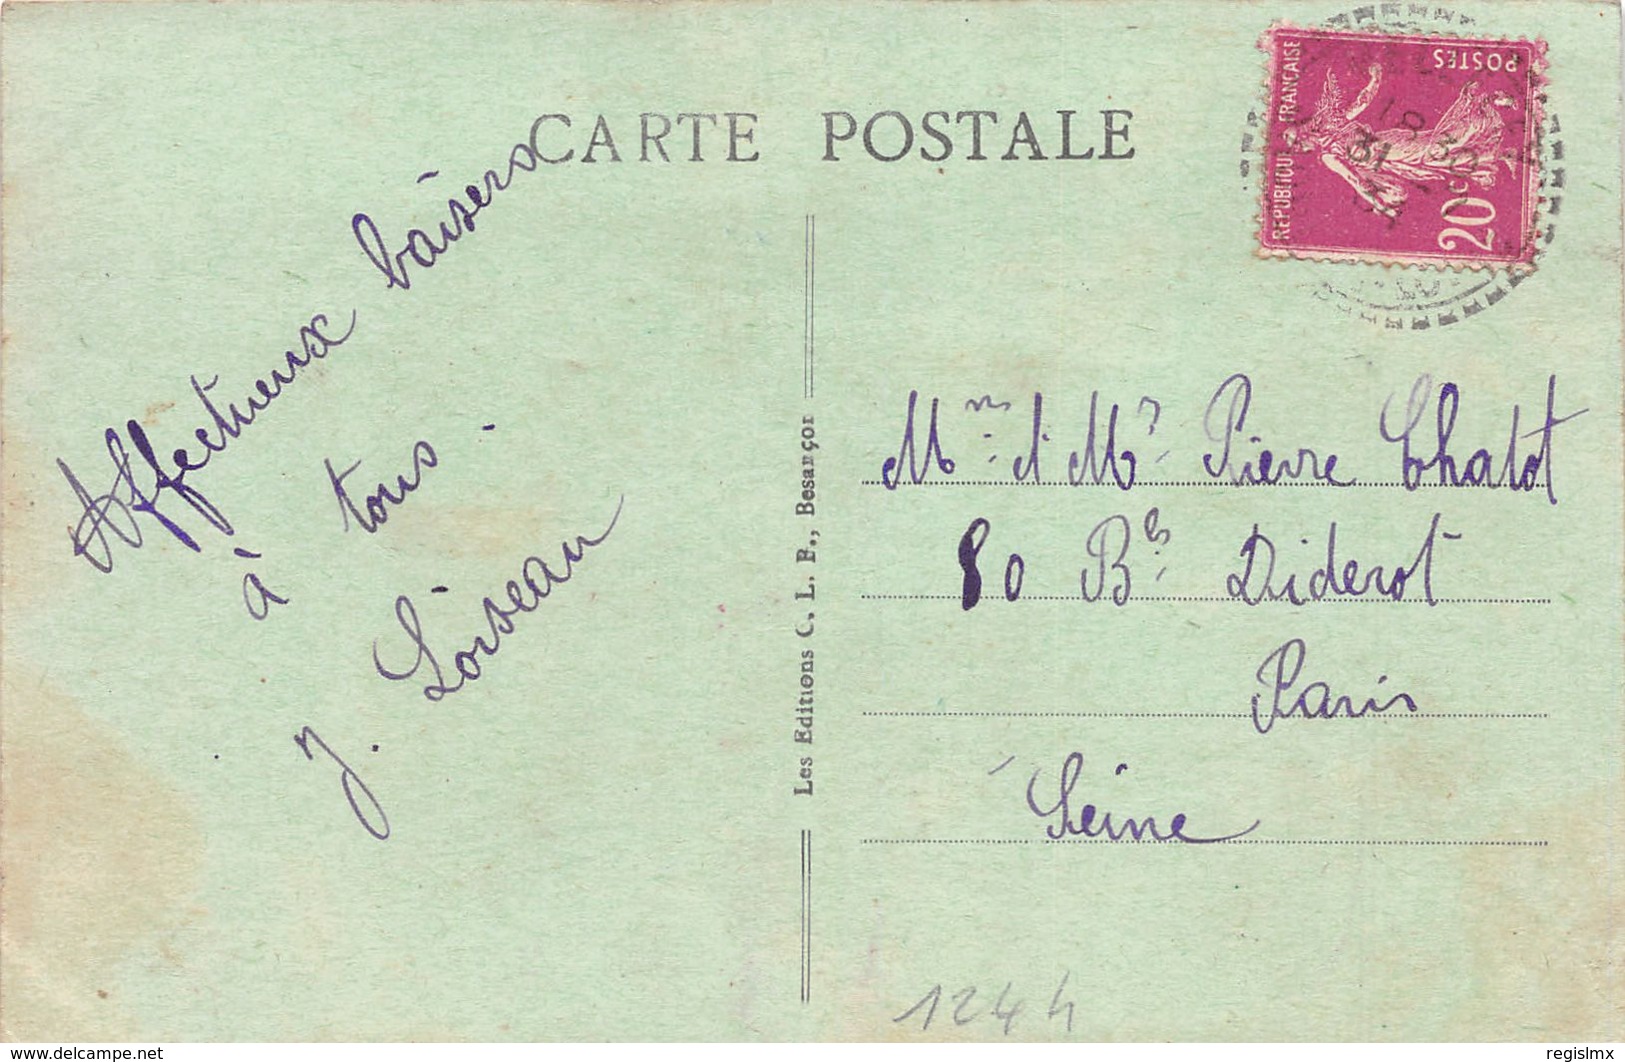 CARTE POSTALE
Affectueux baisers
à tous.
J. Loiseau
Les Editions C. L. B., Besançon
REPUBLIQUE FRANÇAISE
POSTES
20c
18 30
31
34
Mme et Mr Pierre Chatot
80 Bd Diderot
Paris
Seine
1244
www.delcampe.net
regislmx